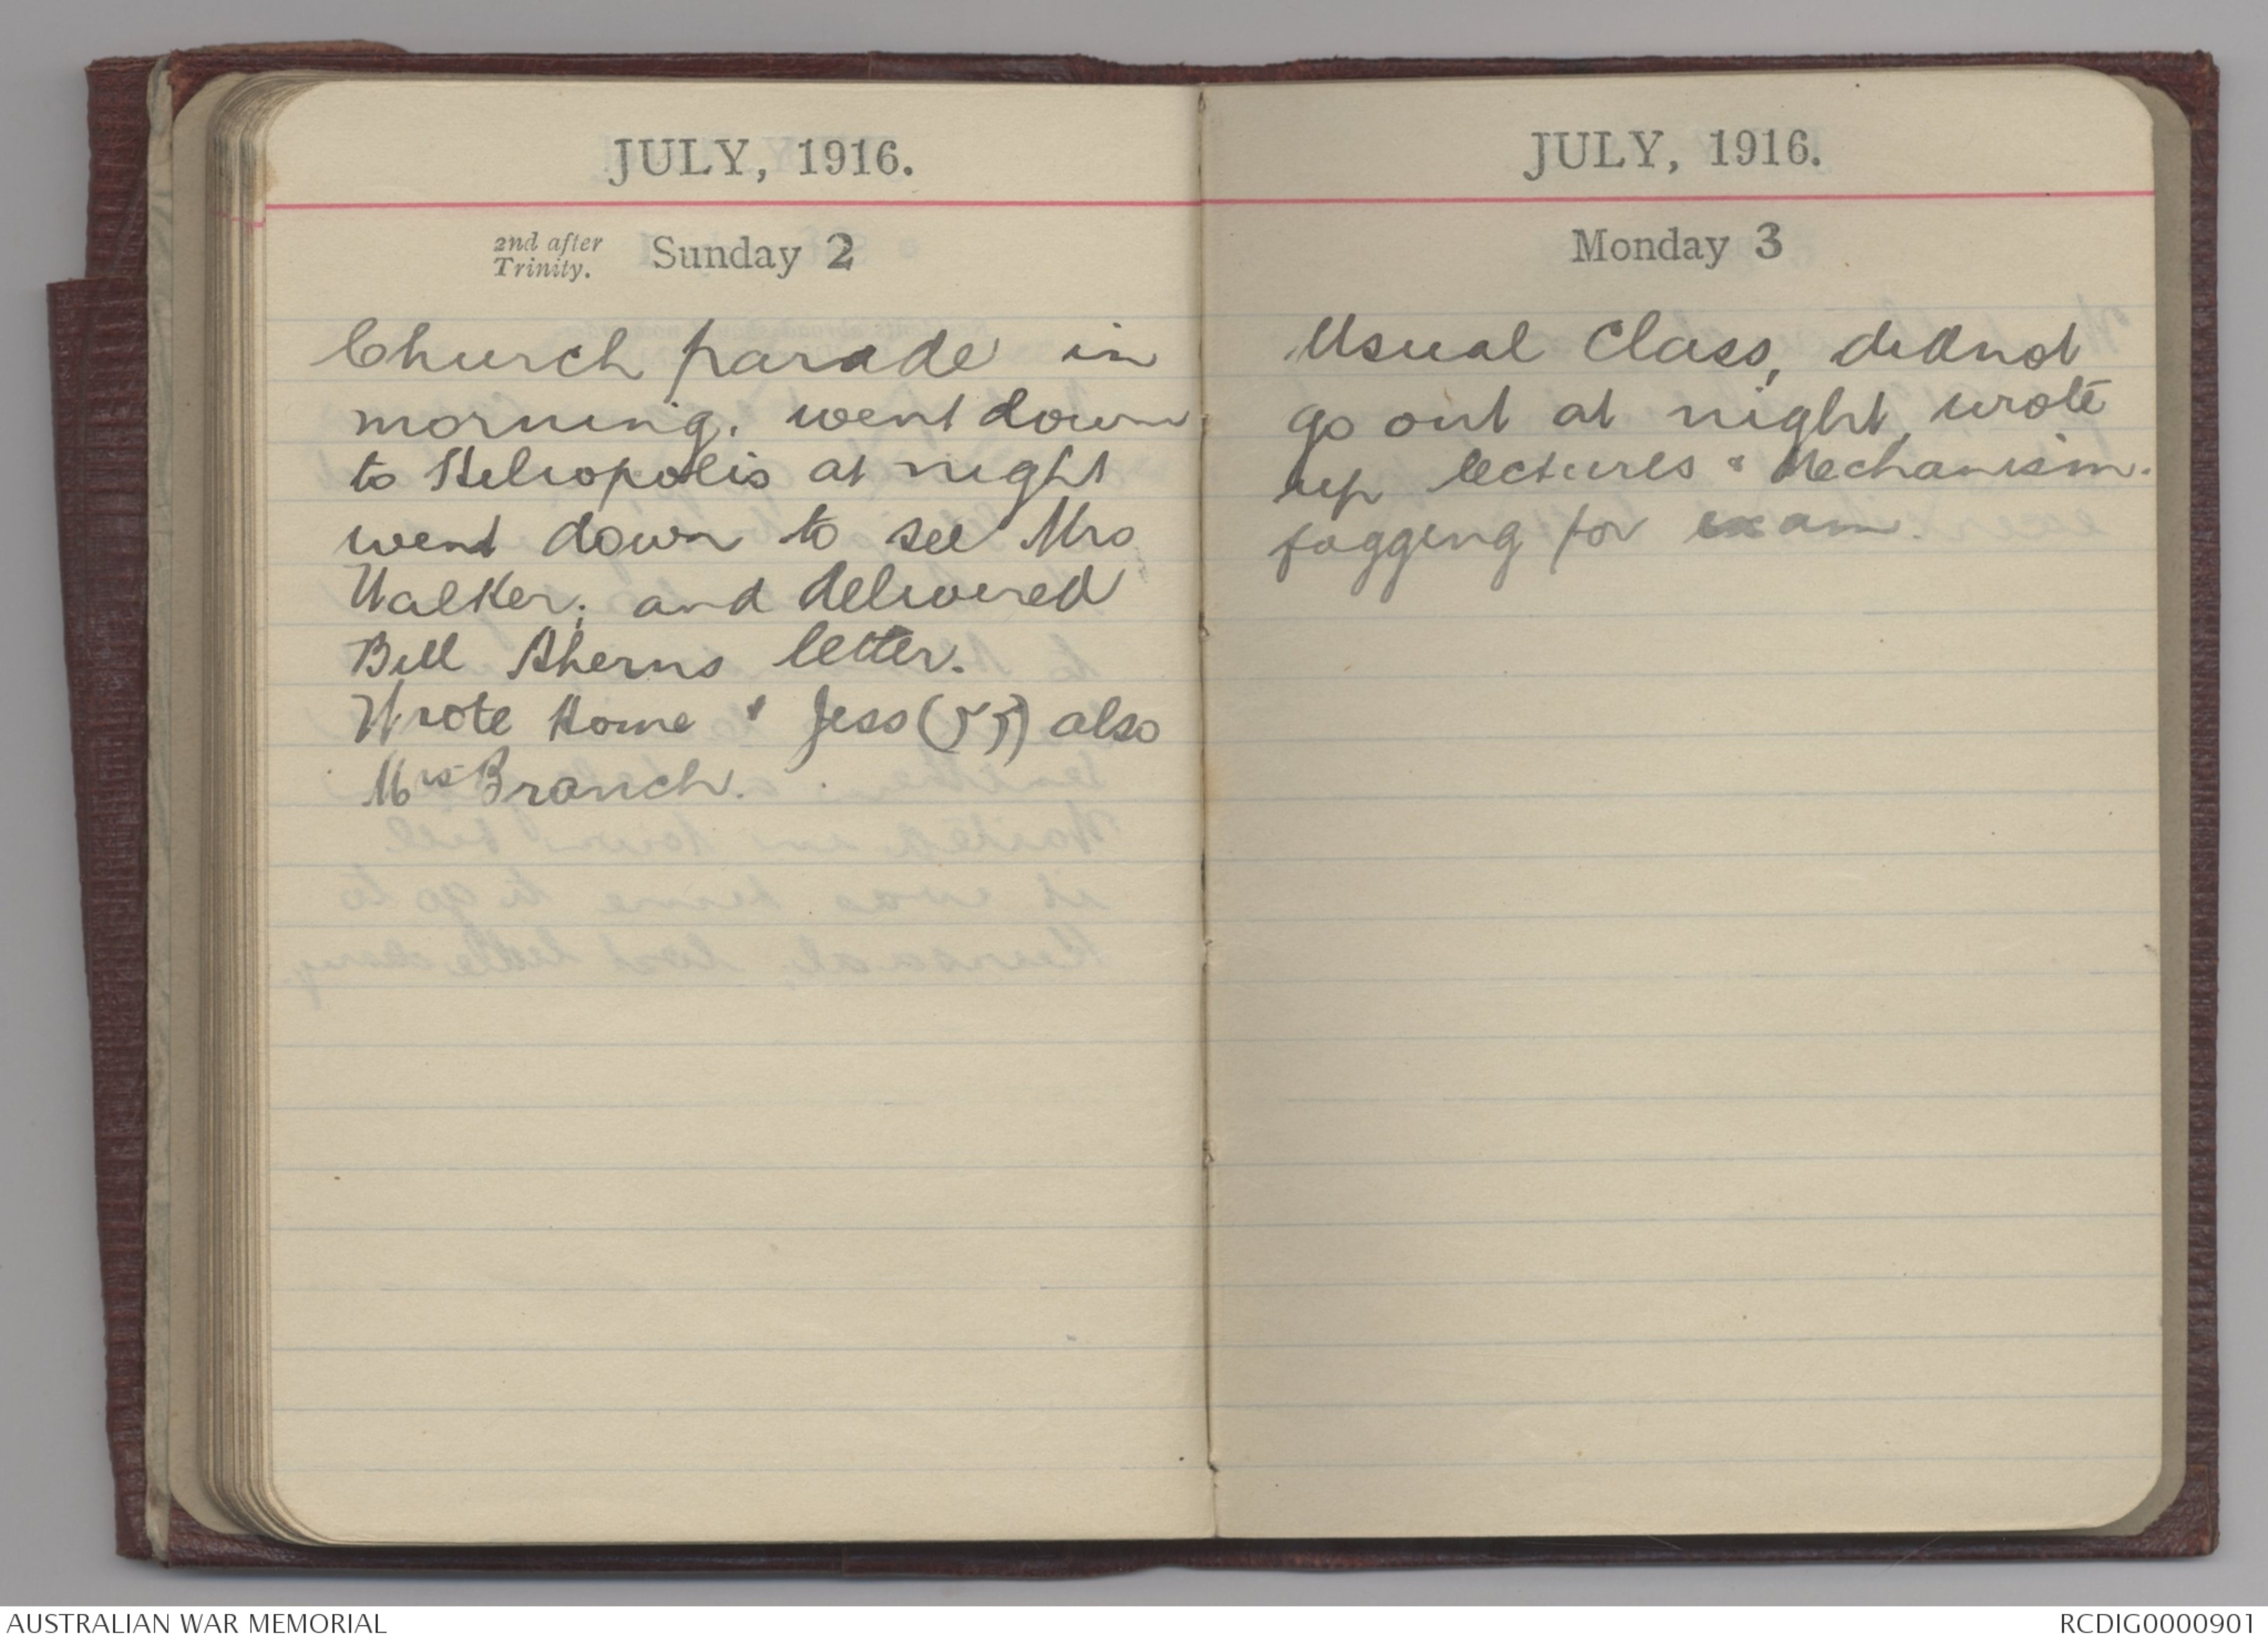 JULY, 1916.
2nd after
Trinity.
Sunday 2
Church parade in
morning. went down
to Heliopolis at night
went down to see Mrs
Walker; and delivered
Bill Aherns letter.
Wrote Home & Jess () also
Mrs Branch.
JULY, 1916.
Monday 3
Usual Class, didnot
go out at night, wrote
up lectures & Mechanism.
fagging for exam.
AUSTRALIAN WAR MEMORIAL
RCDIG0000901